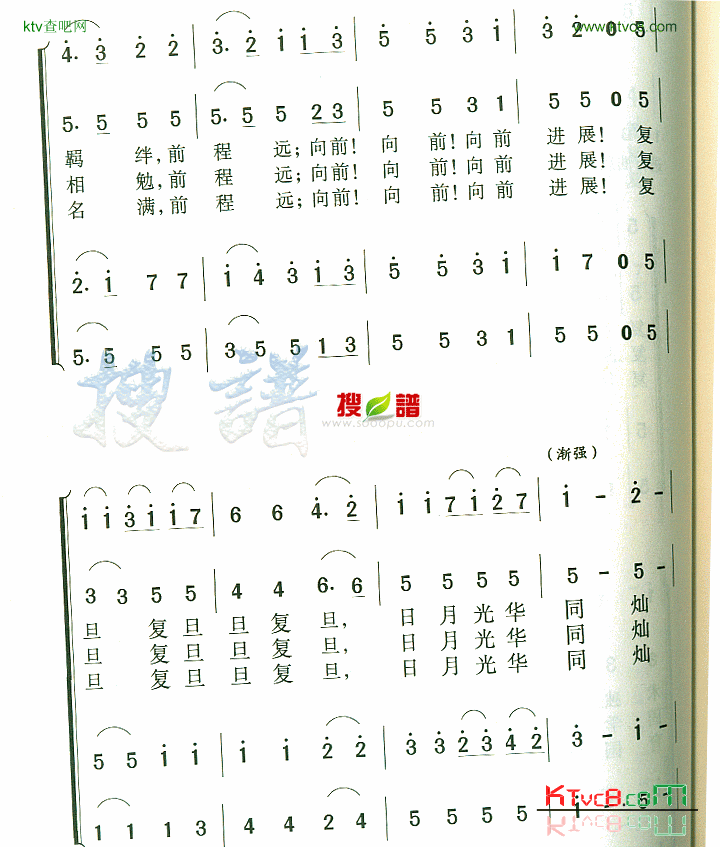 ktv查吧网
www.ktvc8.com
4. 3 2 2 | 3. 2 1 1 3 | 5 5 3 1 | 3 2 0 5 |
5. 5 5 5 | 5. 5 5 2 3 | 5 5 3 1 | 5 5 0 5 |
羁 绊,前 程 远;向前!向 前!向前 进展!复
相 勉,前 程 远;向前!向 前!向前 进展!复
名 满,前 程 远;向前!向 前!向前 进展!复
2. 1 7 7 | 1 4 3 1 3 | 5 5 3 1 | 1 7 0 5 |
5. 5 5 5 | 3 5 5 1 3 | 5 5 3 1 | 5 5 0 5 |
搜譜
搜譜
www.sooopu.com
(渐强)
1 1 3 1 1 7 | 6 6 4. 2 | 1 1 7 1 2 7 | 1 - 2 - |
3 3 5 5 | 4 4 6. 6 | 5 5 5 5 | 5 - 5 - |
旦 复旦 旦复 旦, 日 月光华 同 灿
旦 复旦 旦复 旦, 日 月光华 同 灿
旦 复旦 旦复 旦, 日 月光华 同 灿
5 5 1 1 | 1 1 2 2 | 3 3 2 3 4 2 | 3 - 1 - |
1 1 1 3 | 4 4 2 4 | 5 5 5 5 | 1 - 5 - |
KTvc8.com